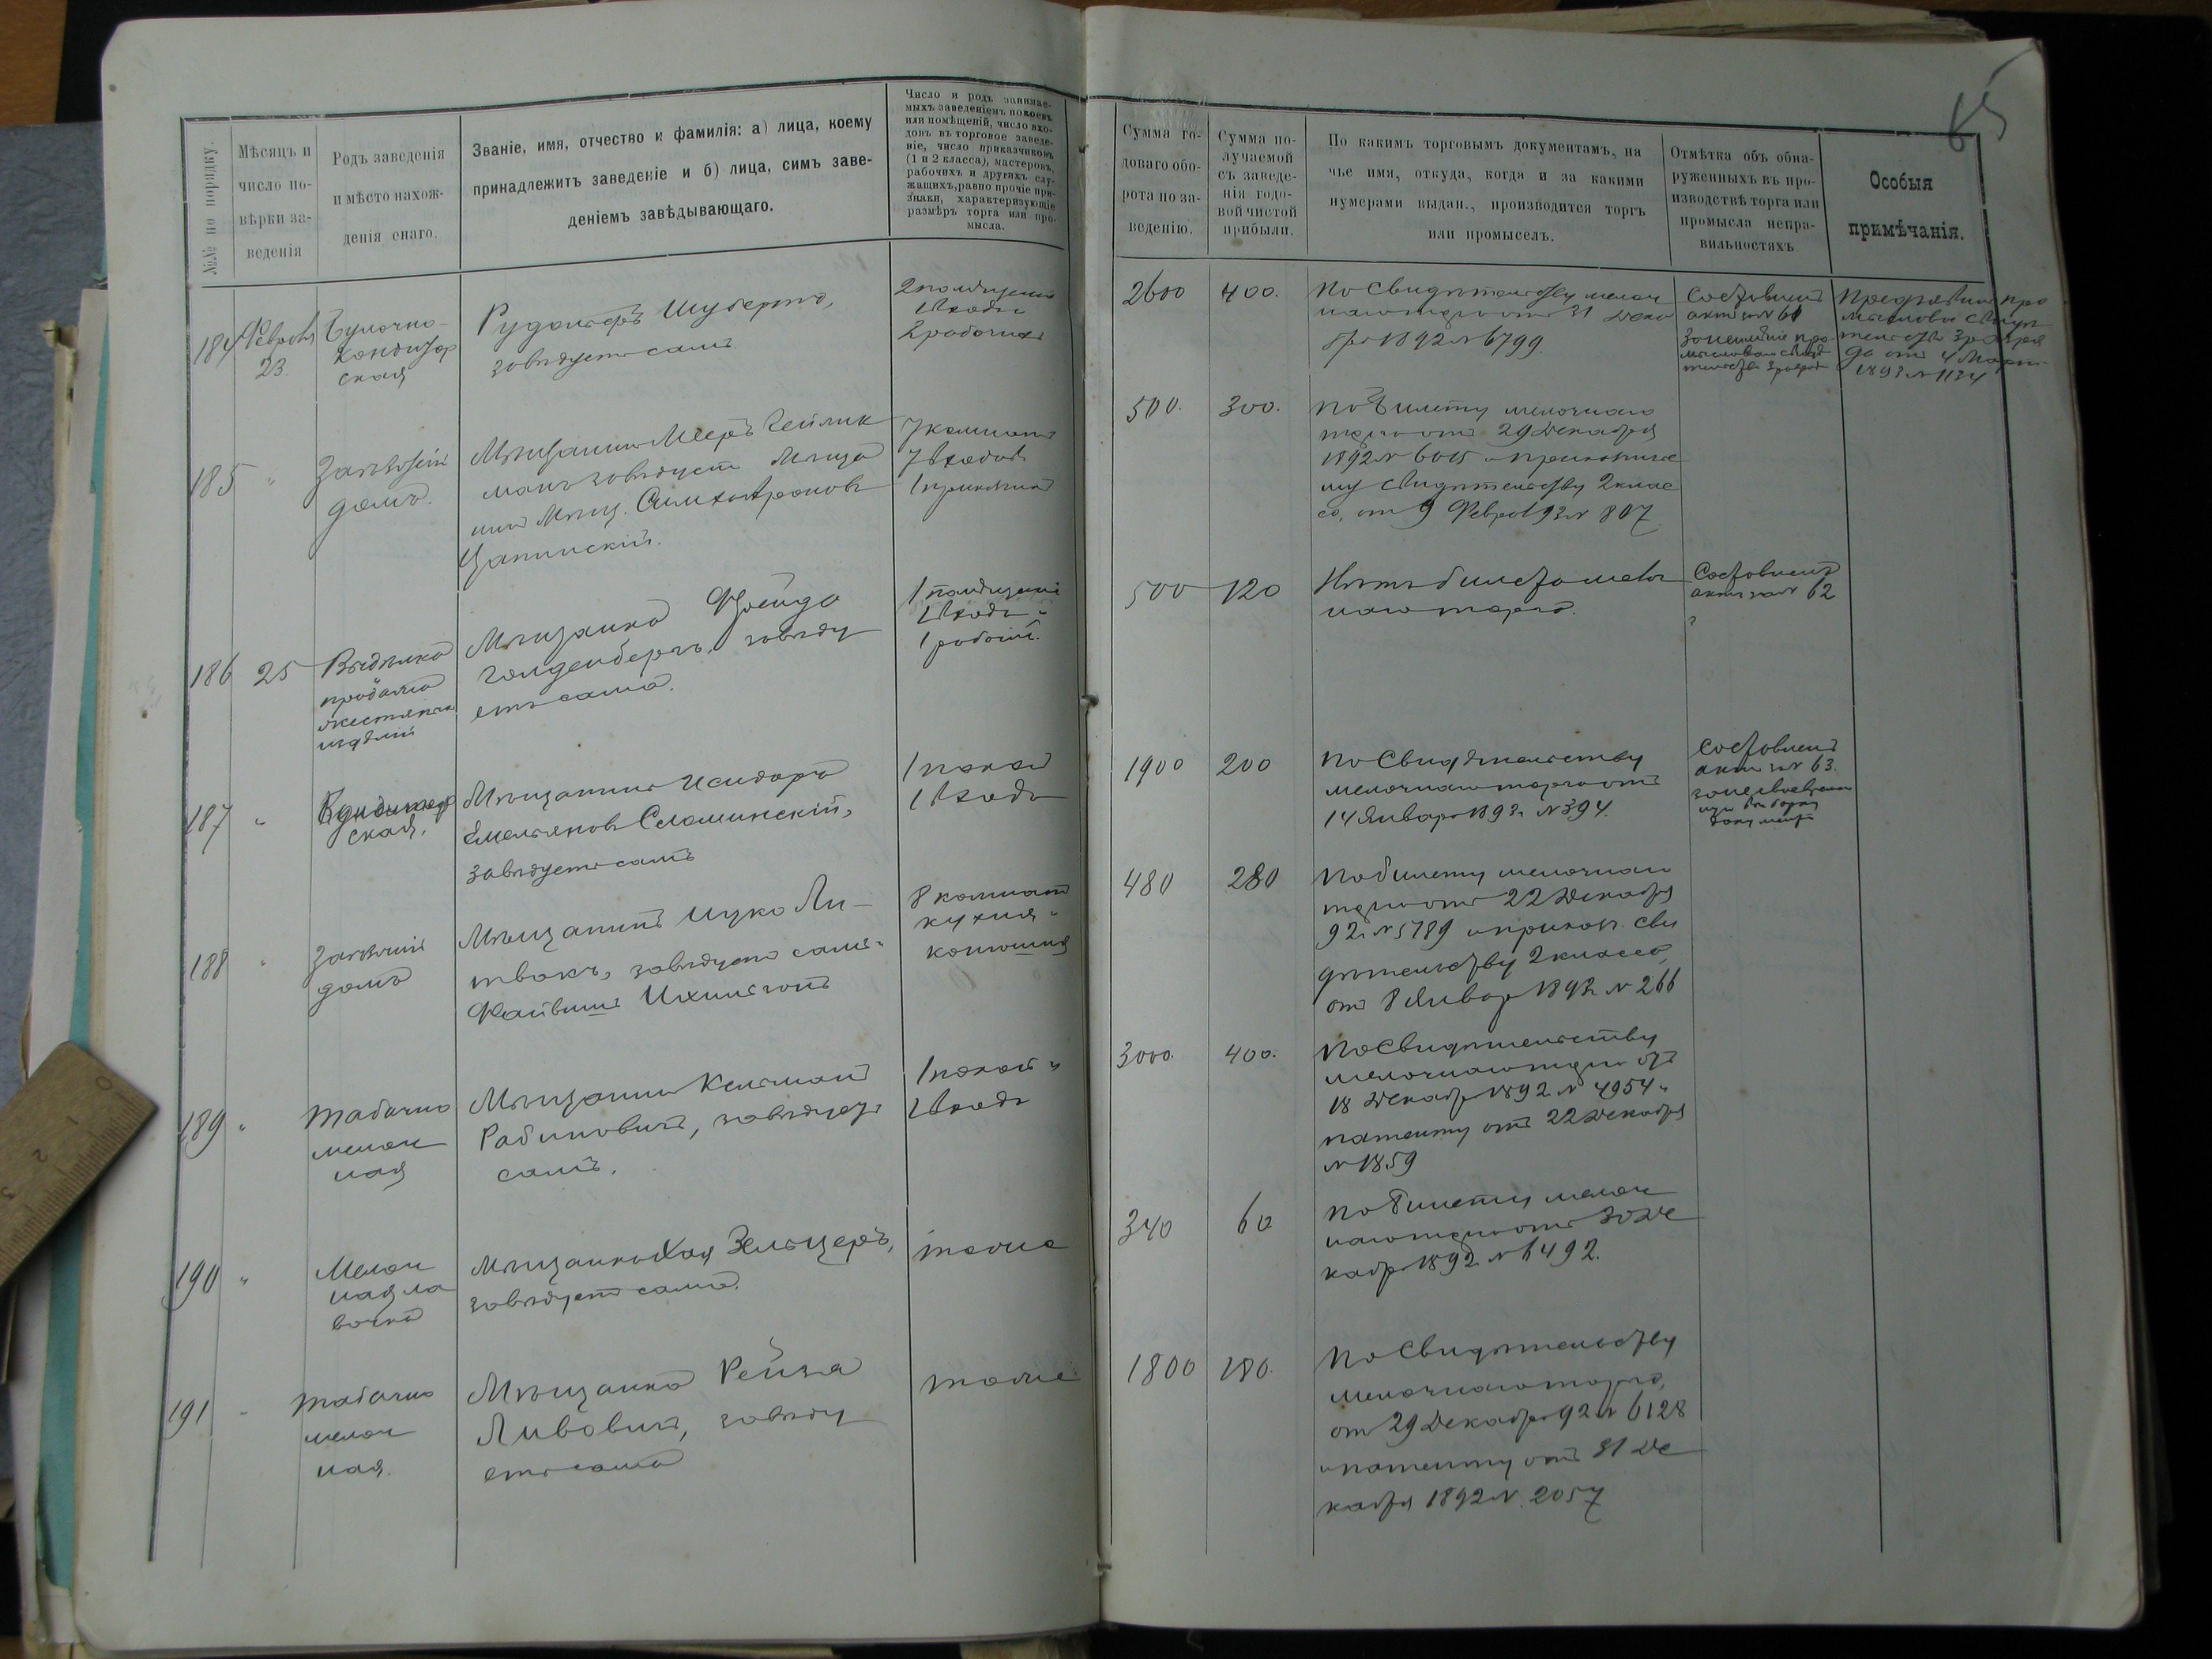 65
№№ по порядку.
Мѣсяцъ и
число по-
вѣрки за-
веденія
Родъ заведенія
и мѣсто нахож-
денія онаго.
Званіе, имя, отчество и фамилія: а) лица, коему
принадлежитъ заведеніе и б) лица, симъ заве-
деніемъ завѣдывающаго.
Число и родъ занимае-
мыхъ заведеніемъ покоевъ
или помѣщеній, число вхо-
довъ въ торговое заведе-
ніе, число приказчиковъ
(1 и 2 класса), мастеровъ,
рабочихъ и другихъ слу-
жащихъ, равно прочіе при-
знаки, характеризующіе
размѣръ торга или про-
мысла.
Сумма го-
доваго обо-
рота по за-
веденію.
Сумма по-
лучаемой
съ заведе-
нія годо-
вой чистой
прибыли.
По какимъ торговымъ документамъ, на
чье имя, откуда, когда и за какими
нумерами выдан., производится торгъ
или промыселъ.
Отмѣтка объ обна-
руженныхъ въ про-
изводствѣ торга или
промысла непра-
вильностяхъ
Особыя
примѣчанія.
184
Февраля
23.
Булочно-
кондитор
ская
Рудольфъ Шубертъ,
завѣдуетъ самъ.
2 помѣщенія
1 входъ
2 рабочихъ
2600
400.
По Свидѣтельству мелоч
наго торга отъ 31 Дека
бря 1892 № 6799.
Составленъ
актъ за № 61
промысловаго
185
"
Заѣзжій
домъ.
Мѣщанинъ Мееръ Гейлик
манъ завѣдуетъ Мѣща
нинъ
7 комнатъ
7 входовъ
500.
300.
по билету мелочнаго
торга отъ 29 Декабря
1892 № 6015 и
му свидѣтельству 2 клас
са, отъ 9 Февра 93 № 807
186
25
Выдѣлка
продажа
жестяныхъ
издѣлій
Мѣщанка Фрейда
Голденбергъ, завѣду
етъ сама.
1 помѣщеніе
1 входъ
1 рабочій.
500
120
Нѣтъ билета мелоч
наго торга.
Составленъ
актъ за № 62
187
"
Кондитер
ская.
Мѣщанинъ Исидоръ
Емельяновъ Сломинскій,
завѣдуетъ самъ
1 покой
1 входъ
1900
200
По Свидѣтельству
мелочнаго торга отъ
14 Января 1893 г. № 394.
Составленъ
актъ за № 63.
188
"
Заѣзжій
домъ
Мѣщанинъ Ицко Ли-
твакъ, завѣдуетъ
8 комнатъ
кухня
конюшня
480
280
По билету мелочнаго
торга отъ 22 Декабря
92 г. № 5789 и приказ. сви
дѣтельству 2 класса,
от 8 Января 1893 № 266
189
"
Табачно
мелоч
ная
Мѣщанинъ Кельманъ
Рабиновичъ, завѣдуетъ
самъ.
1 покой
1 входъ
3000.
400.
По Свидѣтельству
мелочнаго торга отъ
18 Декабр 1892 № 4954 и
патенту отъ 22 Декабря
№ 1859
190
"
Мелоч
ная ла
вочка
Мѣщанка Хая Зельцеръ,
завѣдуетъ сама.
тоже
340
60
По билету мелоч
наго торга отъ 30 Де
кабр 1892 № 6492.
191
"
Табачно
мелоч
ная.
Мѣщанка Рейза
Ливовичъ, завѣду
етъ сама
тоже
1800
180.
По Свидѣтельству
мелочнаго торга,
от 29 Декабря 92 № 6128
и патенту отъ 31 Де
кабря 1892 №. 2057
0
1
2
3